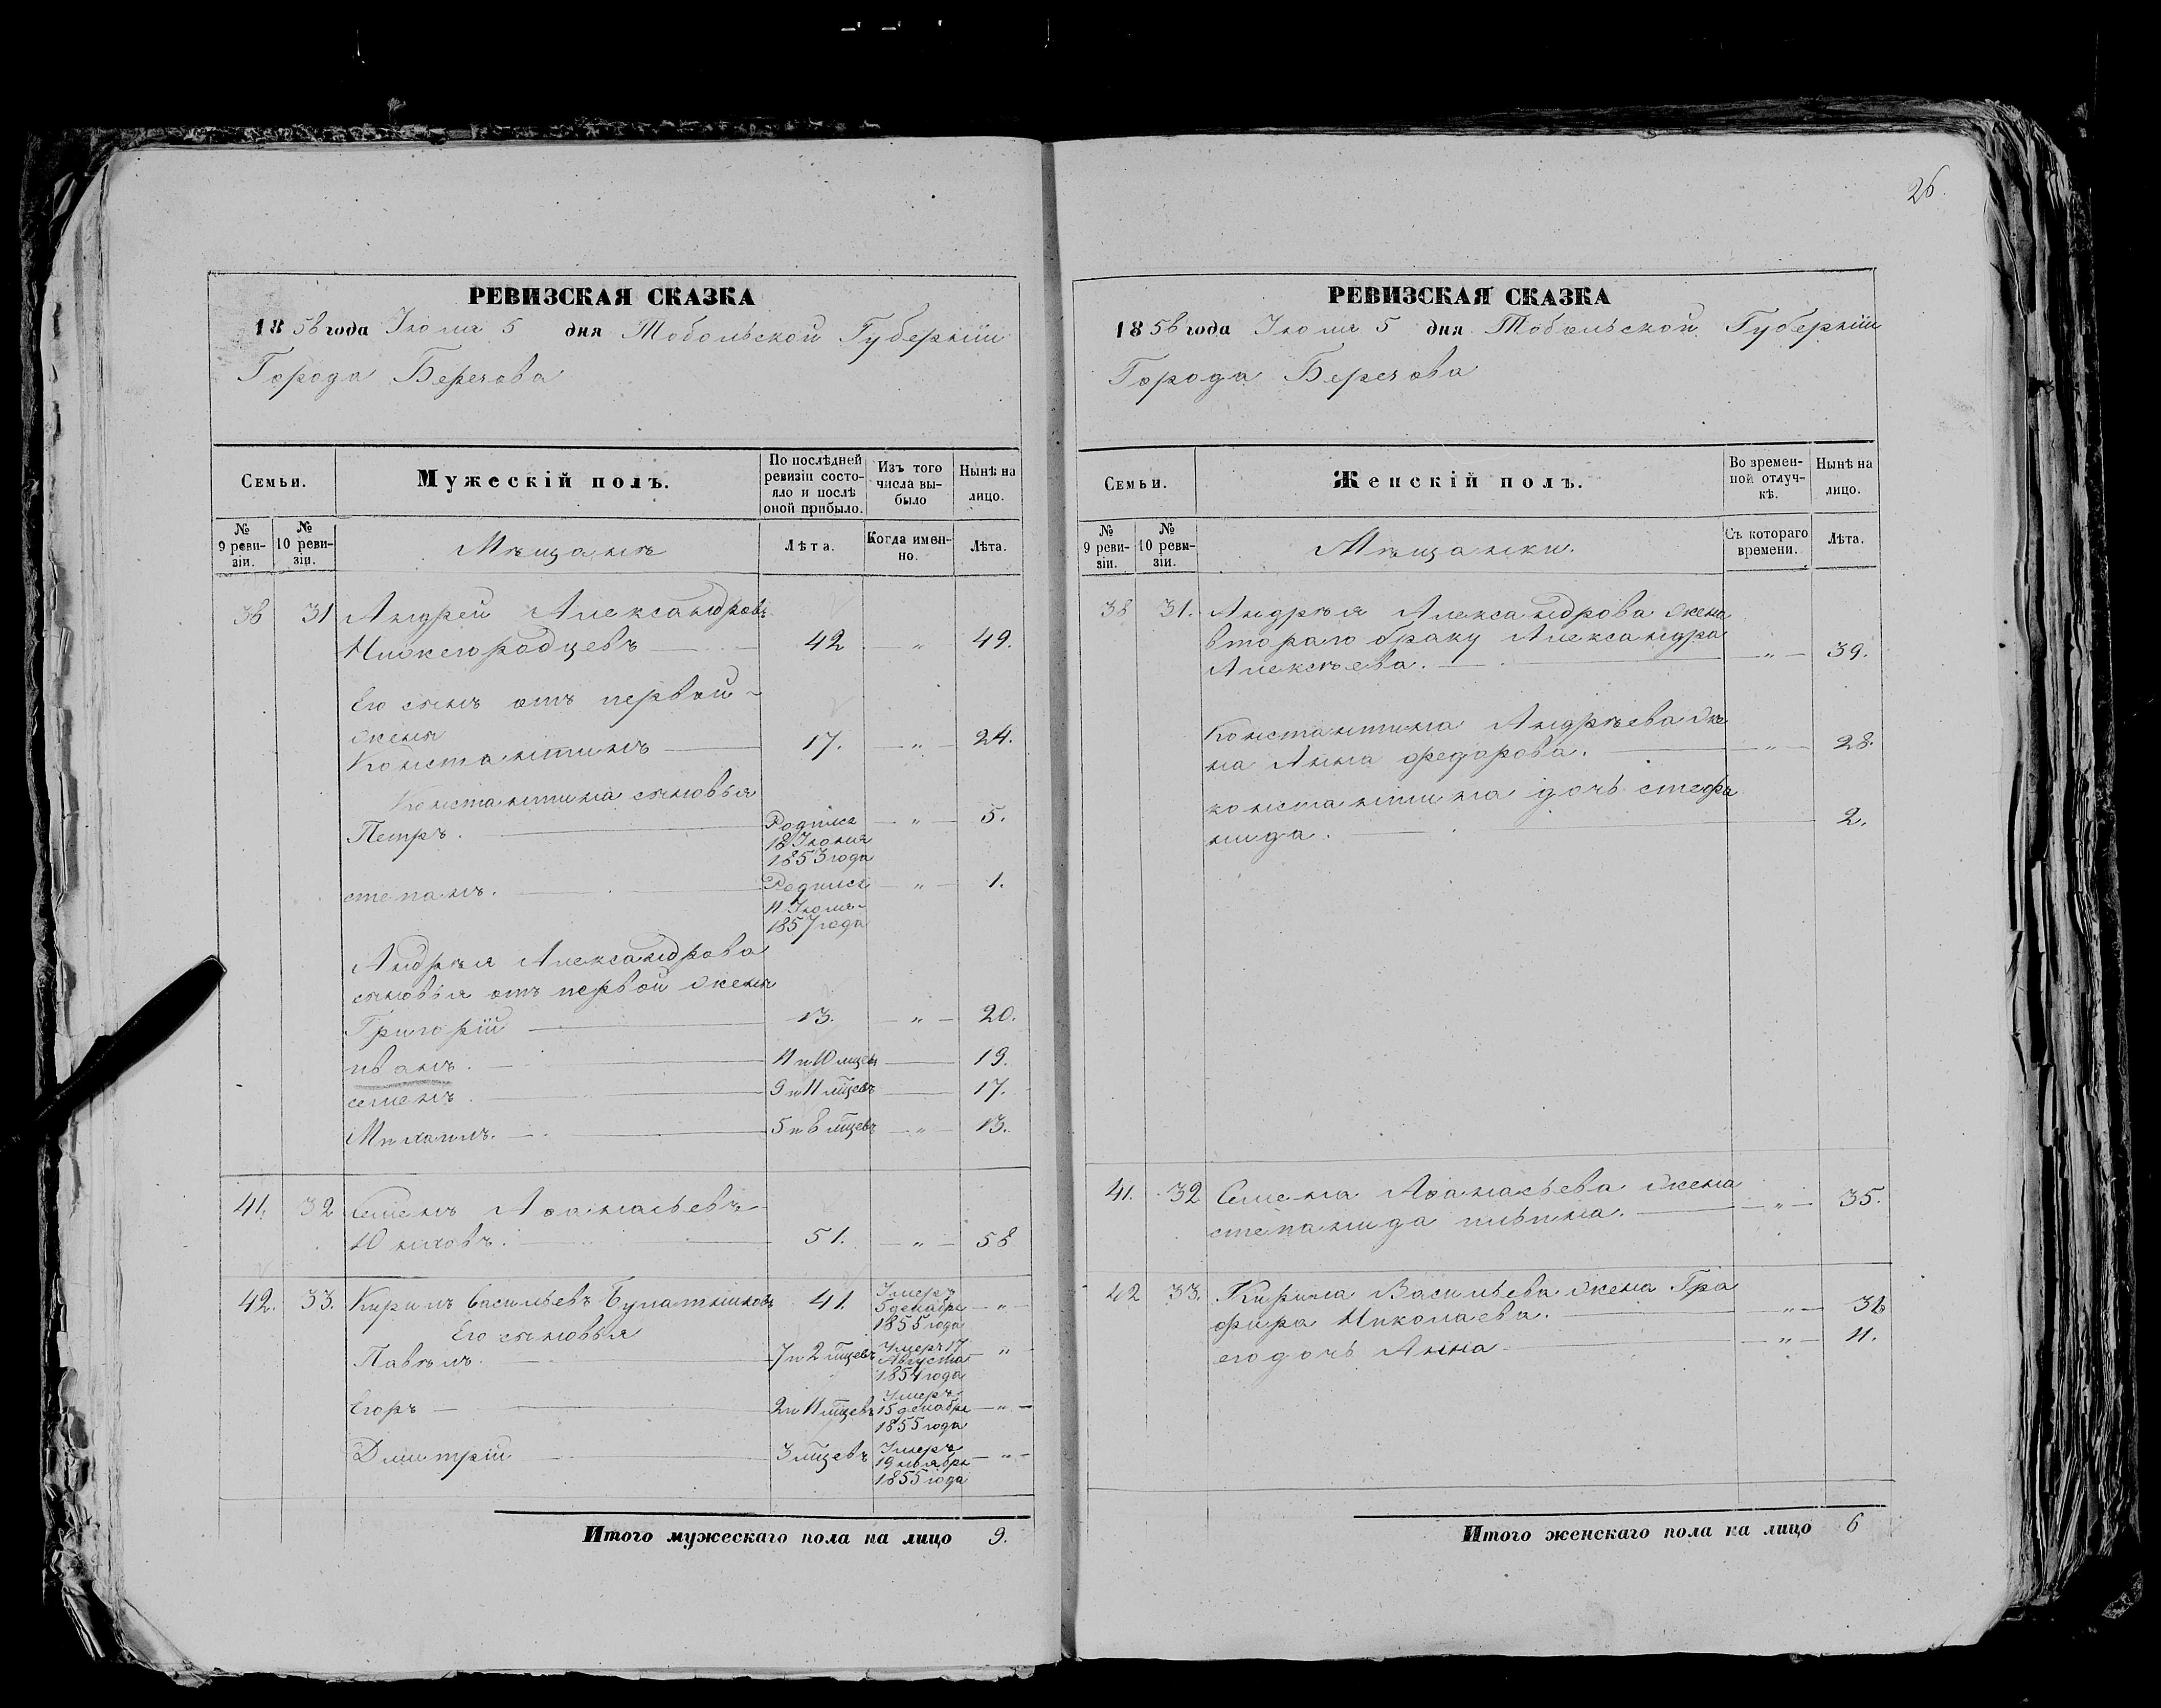 26.
РЕВИЗСКАЯ СКАЗКА
1858 года Июля 5 дня Тобольской Губерніи
Города Березова
Семьи.
Мужескій полъ.
По послѣдней ревизіи состояло и послѣ оной прибыло.
Изъ того числа выбыло
Нынѣ на лицо.
№ 9 ревизіи.
№ 10 ревизіи.
Мѣщанѣ
Лѣта.
Когда именно.
Лѣта.
38 31 Андрей Александровъ
Нижегородцевъ — 42 „ 49.
Его сынъ отъ первой
жены
Константинъ — 17. — „ — 24.
Константина сыновья
Петръ. — Родился — „ — 5.
18 Іюня
1853 года
степанъ. — Родился — „ — 1.
11 Июля
1857 года
Андрея Александрова
сыновья отъ первой жены
Григорій — 13. — „ — 20.
иванъ. — 11 и 10 мцев — 19.
семенъ — 9 и 11 мцевъ — 17.
Михаилъ. — 5 и 8 мцевъ — „ — 13.
41. 32 Семенъ Афанасьевъ
Юнховъ. — 51. — „ — 58
42. 33. Кирилъ Васильевъ 41. Умеръ
5 декабря — „
1855 года
Его сыновья
Павелъ. — 7 и 2 мцевъ Умеръ 17 — „
Августа
1854 года
Егоръ — 2 и 11 мцевъ Умеръ
15 декабря — „ —
1855 года
Дмитрій — 3 мцевъ Умеръ
19 ноября — „ —
1855 года
Итого мужескаго пола на лицо 9.
РЕВИЗСКАЯ СКАЗКА
1858 года Июля 5 дня Тобольской Губерніи
Города Березова
Семьи.
Женскій полъ.
Во временной отлучкѣ.
Нынѣ на лицо.
№ 9 ревизіи.
№ 10 ревизіи.
Мѣщанки.
Съ котораго времени.
Лѣта.
38 31. Андрѣя Александрова жена
втораго браку Александра
Алексѣева. — „ — 39.
Константина Андрѣева же
на Анна федорова. — „ — 28.
константина дочь стефа
нида. — 2.
41. 32 Семена Афанасьева жена
степанида ильина. — „ — 35.
42 33. Кирила Васильева жена Гла
фира Николаева. — „ — 36
его дочь Анна — „ — 11.
Итого женскаго пола на лицо 6